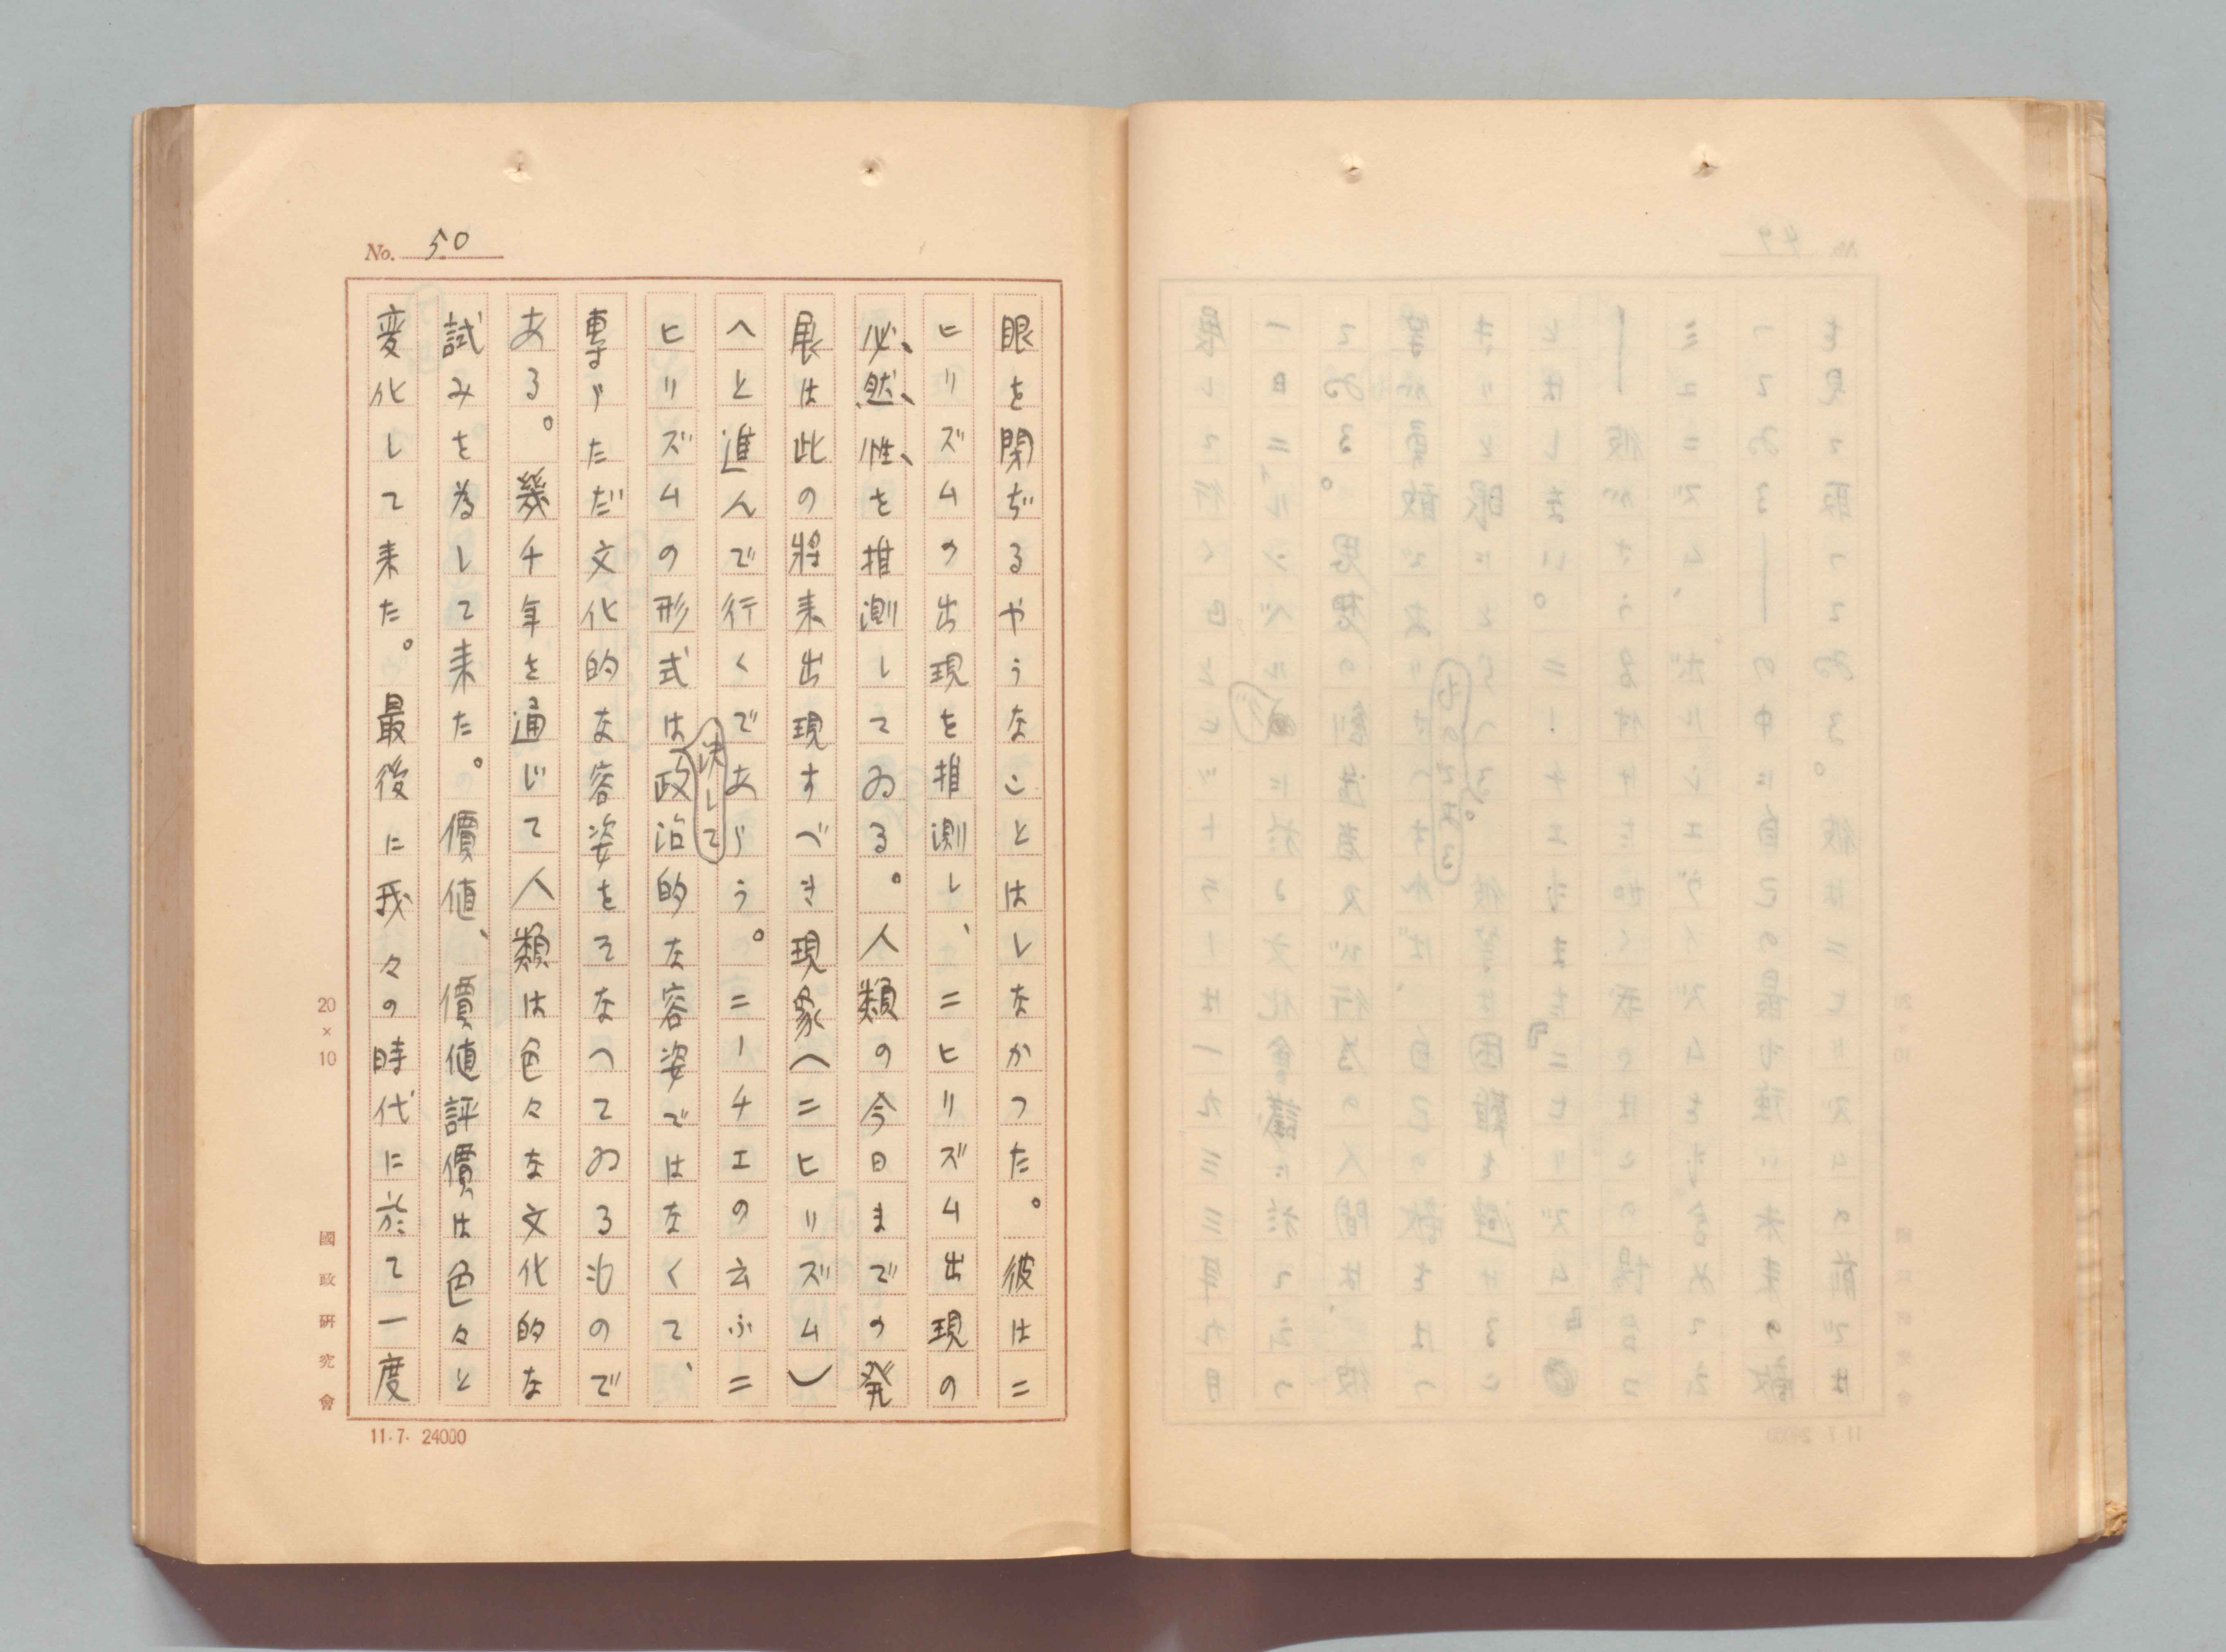 No. 50
眼を閉ぢるやうなことはしなかつた。彼はニ
ヒリズムの出現を推測し、ニヒリズム出現の
必然性を推測してゐる。人類の今日までの発
展は此の將来出現すべき現象へニヒリズム)
へと進んで行くであらう。ニーチエの云ふニ
ヒリズムの形式は決して政治的な容姿ではなくて、
専らただ文化的な容姿をそなへてゐるもので
ある。幾千年を通じて人類は色々な文化的な
試みを為して来た。價値、價値評價は色々と
変化して来た。最後に我々の時代に於て一度
20×10
國政研究會
11.7. 24000